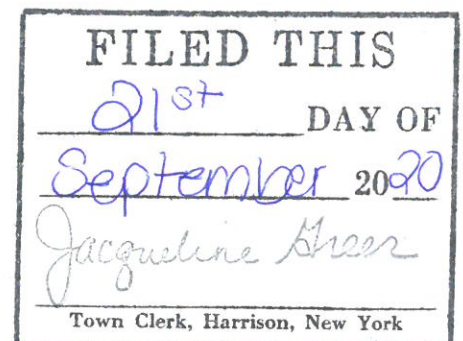 FILED THIS
21st DAY OF
September 2020
Jacqueline Greer
Town Clerk, Harrison, New York